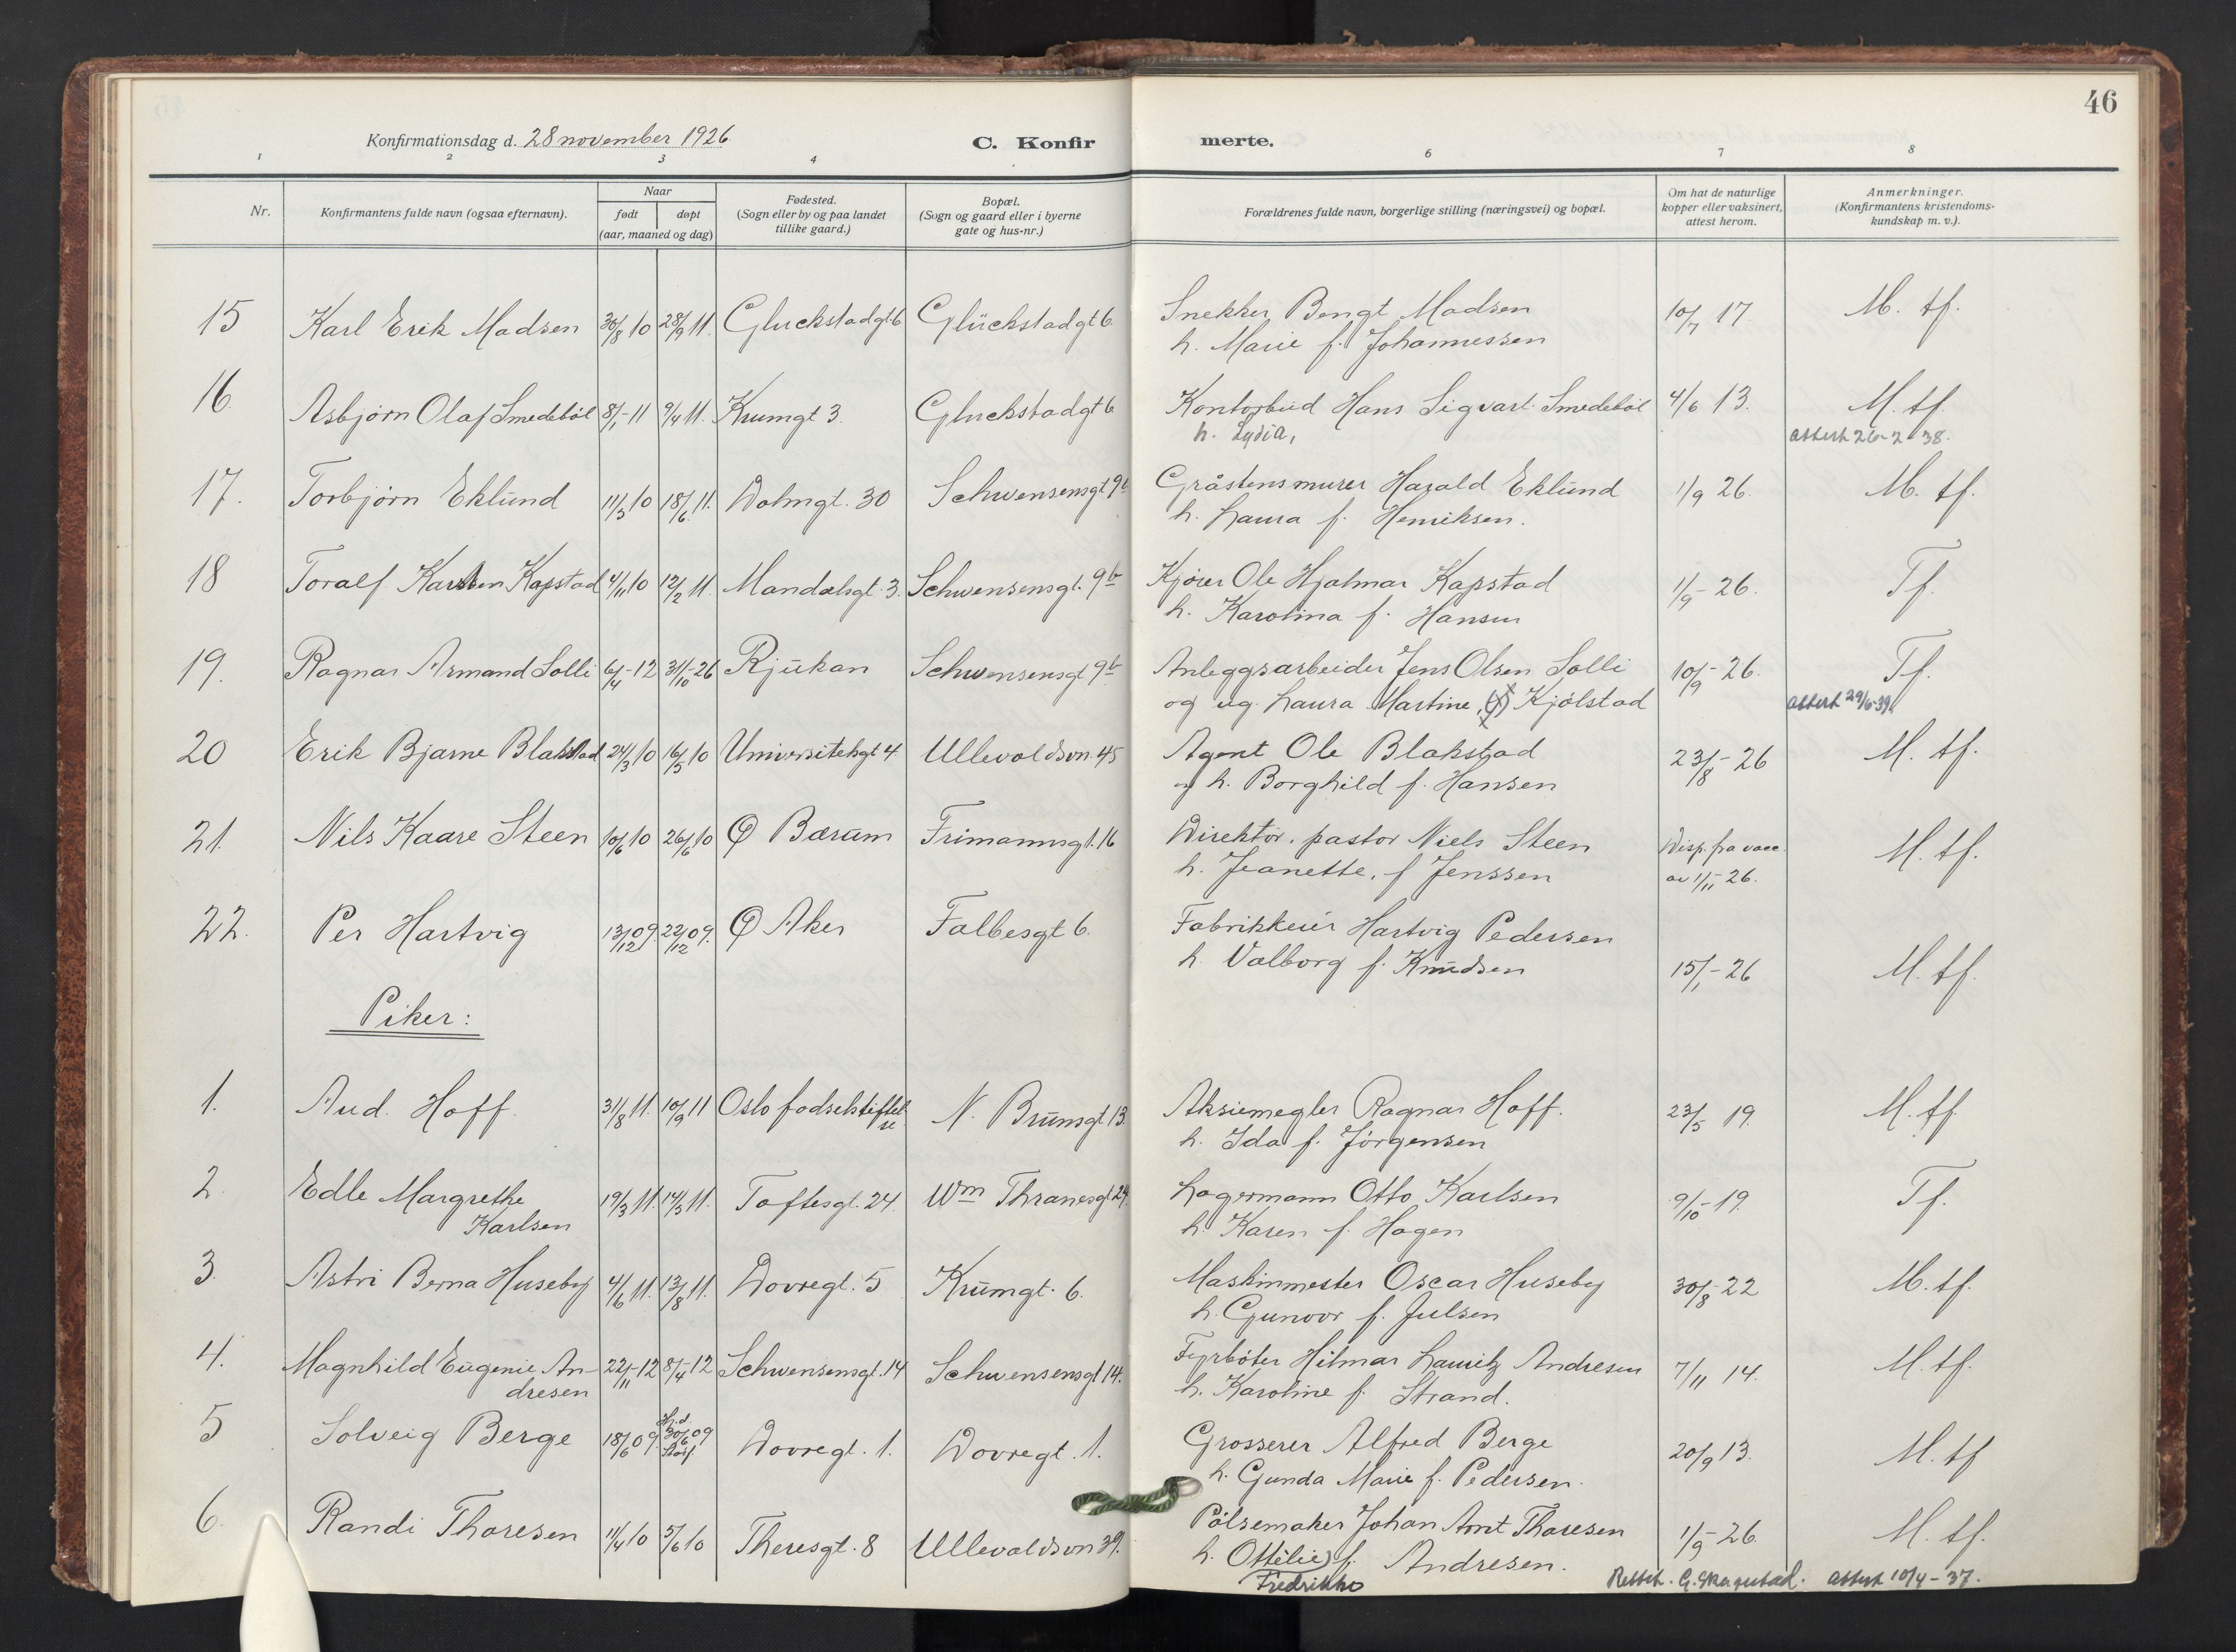 46
Konfirmationsdag d. 28 november 1926.
C. Konfir merte.
1 2 3 4 6 7 8
Nr.
Konfirmantens fulde navn (ogsaa efternavn).
Naar
født døpt
(aar, maaned og dag)
Fødested.
(Sogn eller by og paa landet
tillike gaard.)
Bopæl.
(Sogn og gaard eller i byerne
gate og hus-nr.)
Forældrenes fulde navn, borgerlige stilling (næringsvei) og bopæl.
Om hat de naturlige
kopper eller vaksinert,
attest herom.
Anmerkninger.
(Konfirmantens kristendoms-
kundskap m. v.).
15 Karl Erik Madsen 30/8 10 28/9 11. Gluckstadgt 6 Glückstadgt 6. Snekker Bengt Madsen 10/7 17. M. tf.
h. Marie f. Johannessen
16. Asbjørn Olaf Smedebøl 8/1-11 9/4 11. Krumgt 3. Gluckstadgt 6 Kontorbud Hans Sigvart Smedebøl 4/6 13. M. tf.
h. Lydia, attest 26-2-38.
17. Torbjørn Eklund 11/3 10 18/6 11. Dolmgt. 30 Schwensensgt 9b Gråstensmurer Harald Eklund 1/9 26. M. tf.
h. Laura f. Henriksen.
18 Toralf Karsten Kapstad 4/11 10 12/2 11. Mandalsgt. 3. Schwensensgt. 9b Kjører Ole Hjalmar Kapstad 1/9-26. Tf.
h. Karolina f. Hansen
19. Ragnar Armand Solli 6/4-12 31/10-26 Rjukan Schwensensgt 9b Anleggsarbeider Jens Olsen Solli 10/9-26. Tf.
og ug. Laura Martine, Kjølstad attest 29/6-39.
20 Erik Bjarne Blakstad 24/3 10 16/5 10 Universitetsgt 4 Ullevoldsvn. 45 Agent Ole Blakstad 23/8-26 M. tf.
og h. Borghild f. Hansen
21. Nils Kaare Steen 10/6 10 26/6 10 Ø Bærum Frimannsgt. 16 Direktør, pastor Niels Steen Disp. fra vacc. M. tf.
h. Jeanette, f Jenssen av 1/11-26.
22. Per Hartvig 13/12 09. 22/12 09. Ø Aker Falbesgt 6. Fabrikkeier Hartvig Pedersen
h. Valborg f. Knudsen 15/1-26 M. tf.
Piker:
1. Aud. Hoff. 31/8 11. 10/9 11 Oslo fødselstiftel
se N. Brunsgt 13. Aksiemegler Ragnar Hoff. 23/5 19. M. tf.
h. Ida f. Jørgensen
2. Edle Margrethe 19/3 11. 14/5 11. Toftesgt. 24. Wm Thranesgt 24. Lagermann Otto Karlsen 9/10-19. Tf.
Karlsen h. Karen f. Hagen
3. Astri Berna Huseby 4/6 11. 13/8 11. Dovregt. 5 Krumgt. 6. Maskinmester Oscar Huseby 30/8-22 M. tf.
h. Gunvor f. Julsen
4. Magnhild Eugenie An- 22/11-12 8/4-12 Schwensensgt. 14 Schwensensgt 14. Fyrbøter Hilmar Lauritz Andresen 7/11 14. M. tf.
dresen h. Karoline f. Strand.
5 Solveig Berge 18/6 09. Hj.d. 30/6 09 Dovregt. 1. Dovregt. 1. Grosserer Alfred Berge 20/9 13. M. tf
h. Gunda Marie f. Pedersen.
6. Randi Thoresen 11/4 10 5/6 10 Theresgt. 8 Ullevoldsvn 39. Pølsemaker Johan Arnt Thoresen 1/9-26. M. tf.
h. Ottilie f. Andresen.
Fredrikke Rettet. G. Skagestad. attest 10/4-37.